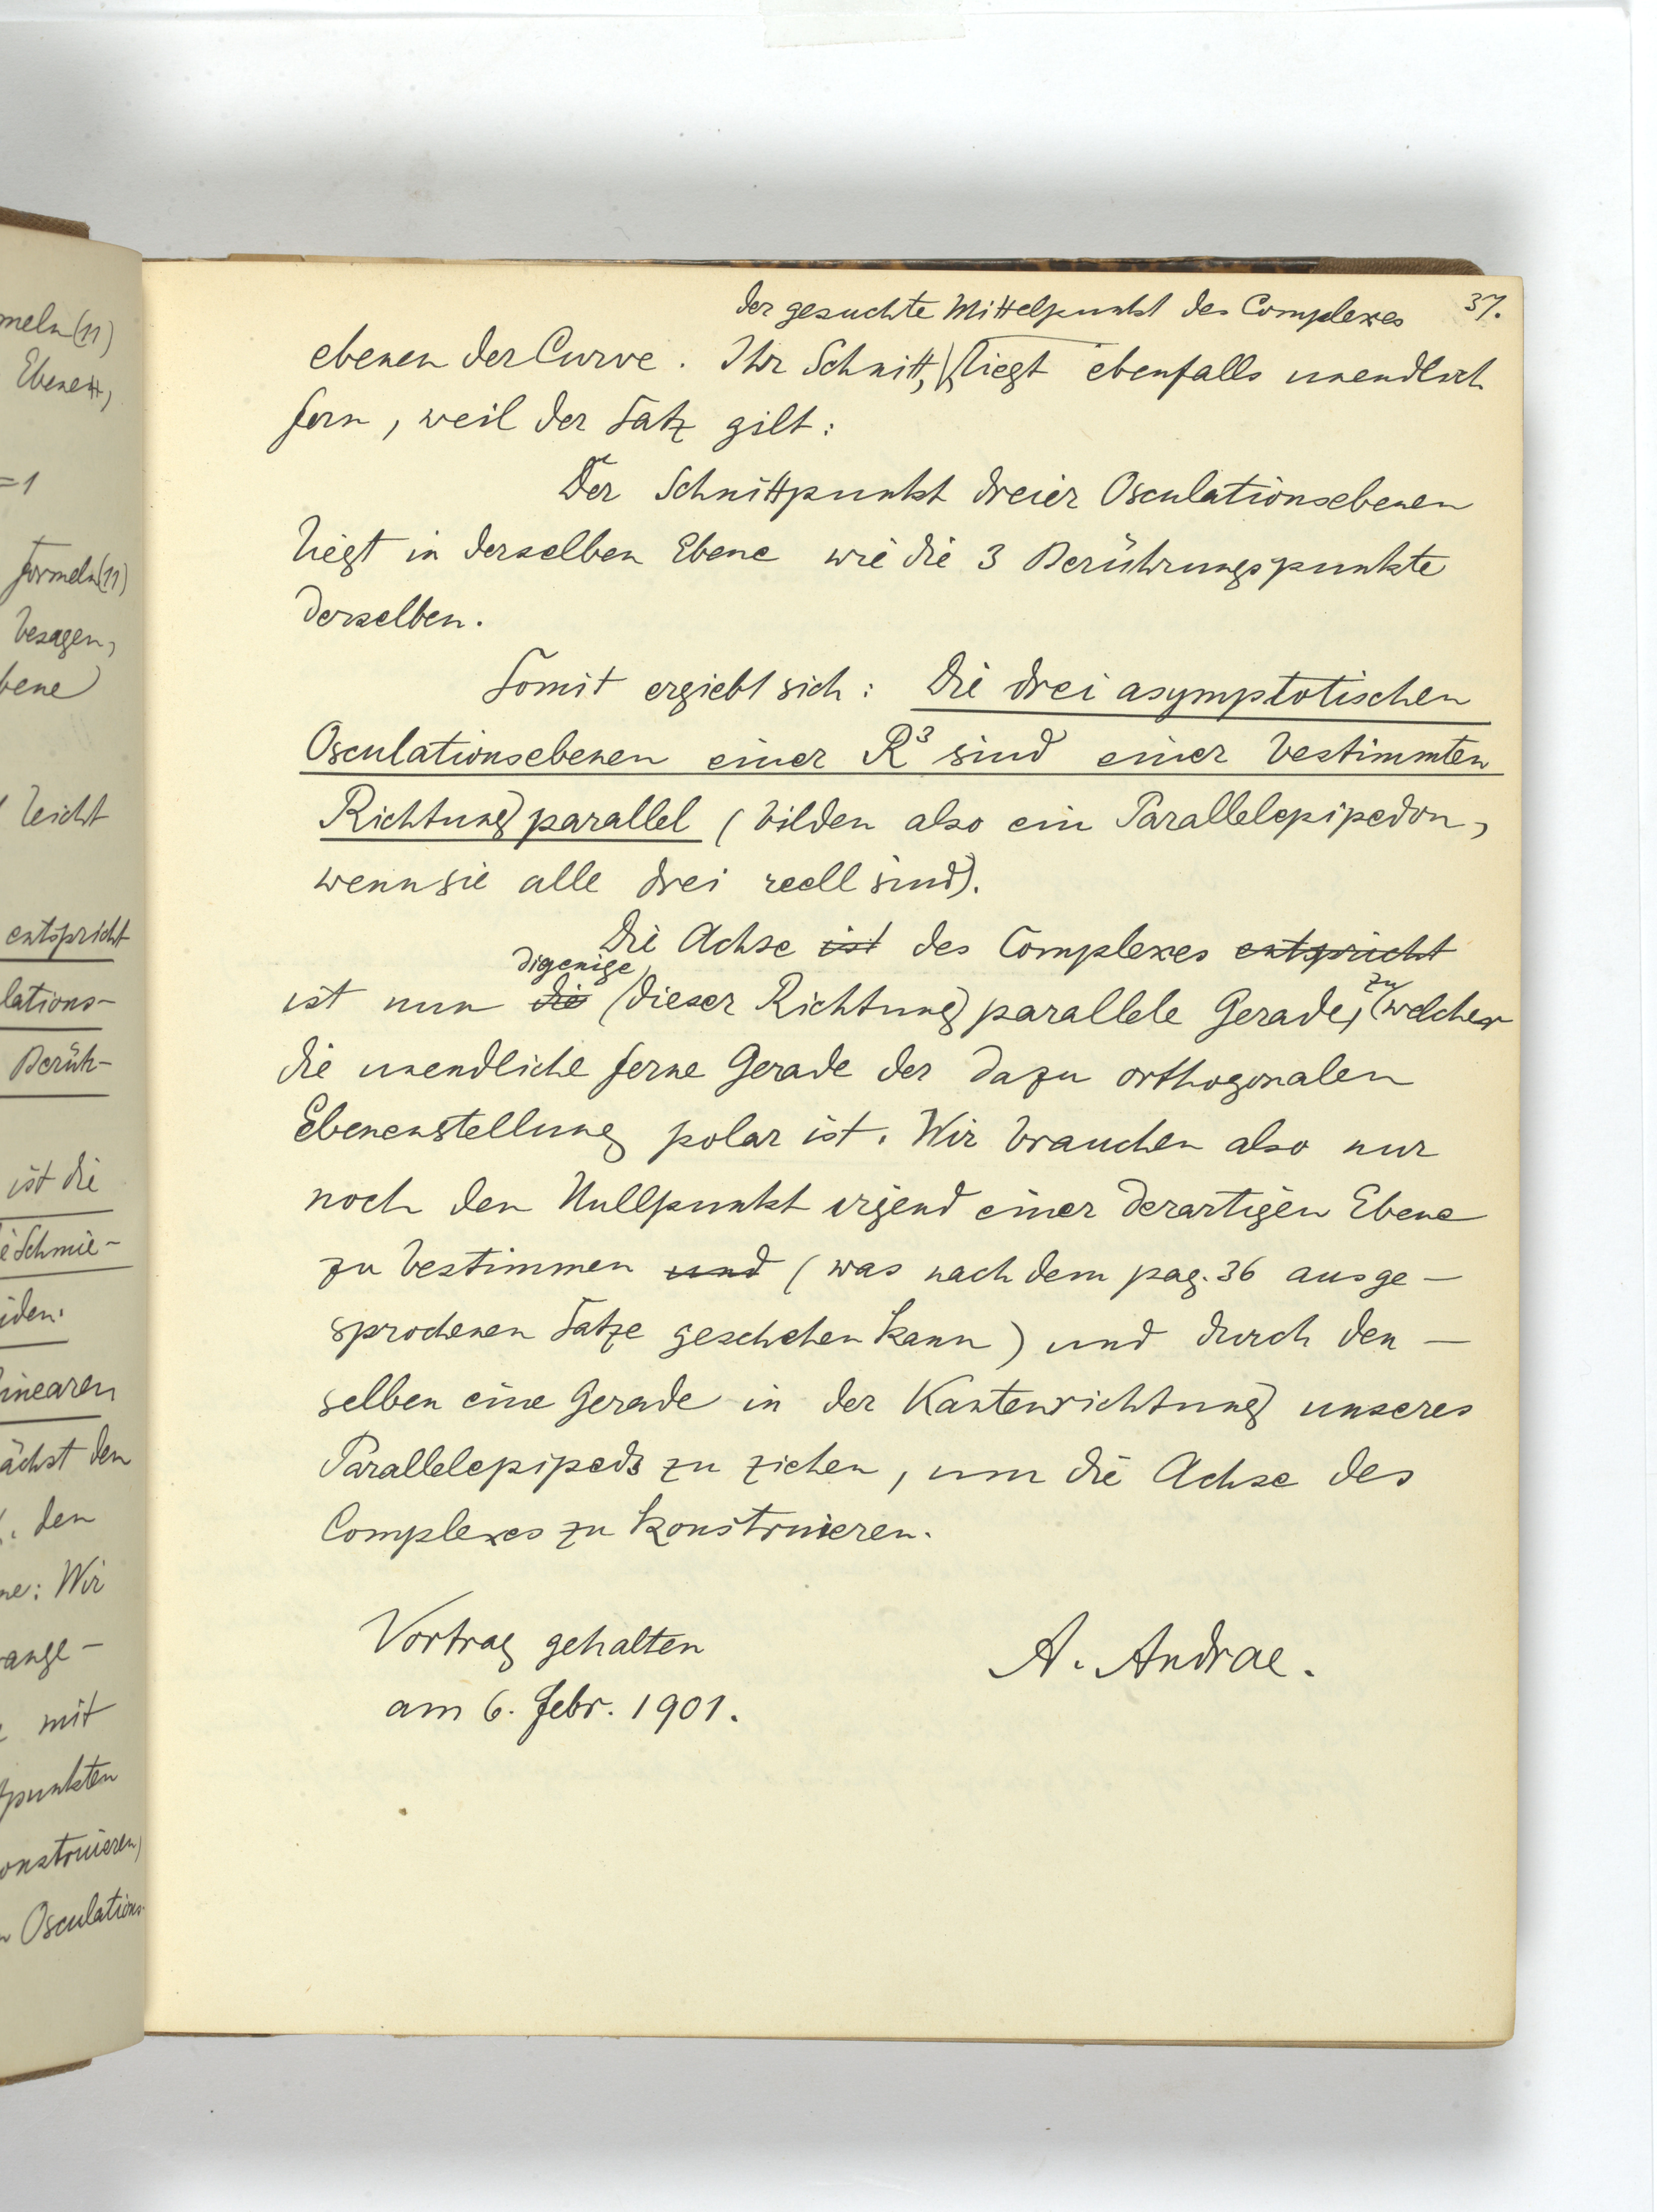 meln (11)
Ebenen,
=1
formeln (11)
besagen,
bene
leicht
entspricht
lations-
Berüh-
ist die
Schmie-
iden.
linearen
ächst den
den
ne: Wir
ange-
mit
punkten
onstruieren,
Osculations-
37.
der gesuchte Mittelpunkt des Complexes
ebenen der Curve. Ihr Schnitt, liegt ebenfalls unendlich
fern, weil der Satz gilt:
Der Schnittpunkt dreier Osculationsebenen
liegt in derselben Ebene wie die 3 Berührungspunkte
derselben.
Somit ergiebt sich: Die drei asymptotischen
Osculationsebenen einer R³ sind einer bestimmten
Richtung parallel (bilden also ein Parallelepipedon,
wenn sie alle drei reell sind).
Die Achse ist des Complexes entspricht
digenige zu
ist nun die dieser Richtung parallele Gerade, welcher
die unendliche ferne Gerade der dazu orthogonalen
Ebenenstellung polar ist. Wir brauchen also nur
noch den Nullpunkt irgend einer derartigen Ebene
zu bestimmen und (was nach dem pag. 36 ausge-
sprochenen Satze geschehen kann) und durch den-
selben eine Gerade in der Kantenrichtung unseres
Parallelepipeds zu ziehen, um die Achse des
Complexes zu konstruieren.
Vortrag gehalten
am 6. Febr. 1901.
A. Andrae.